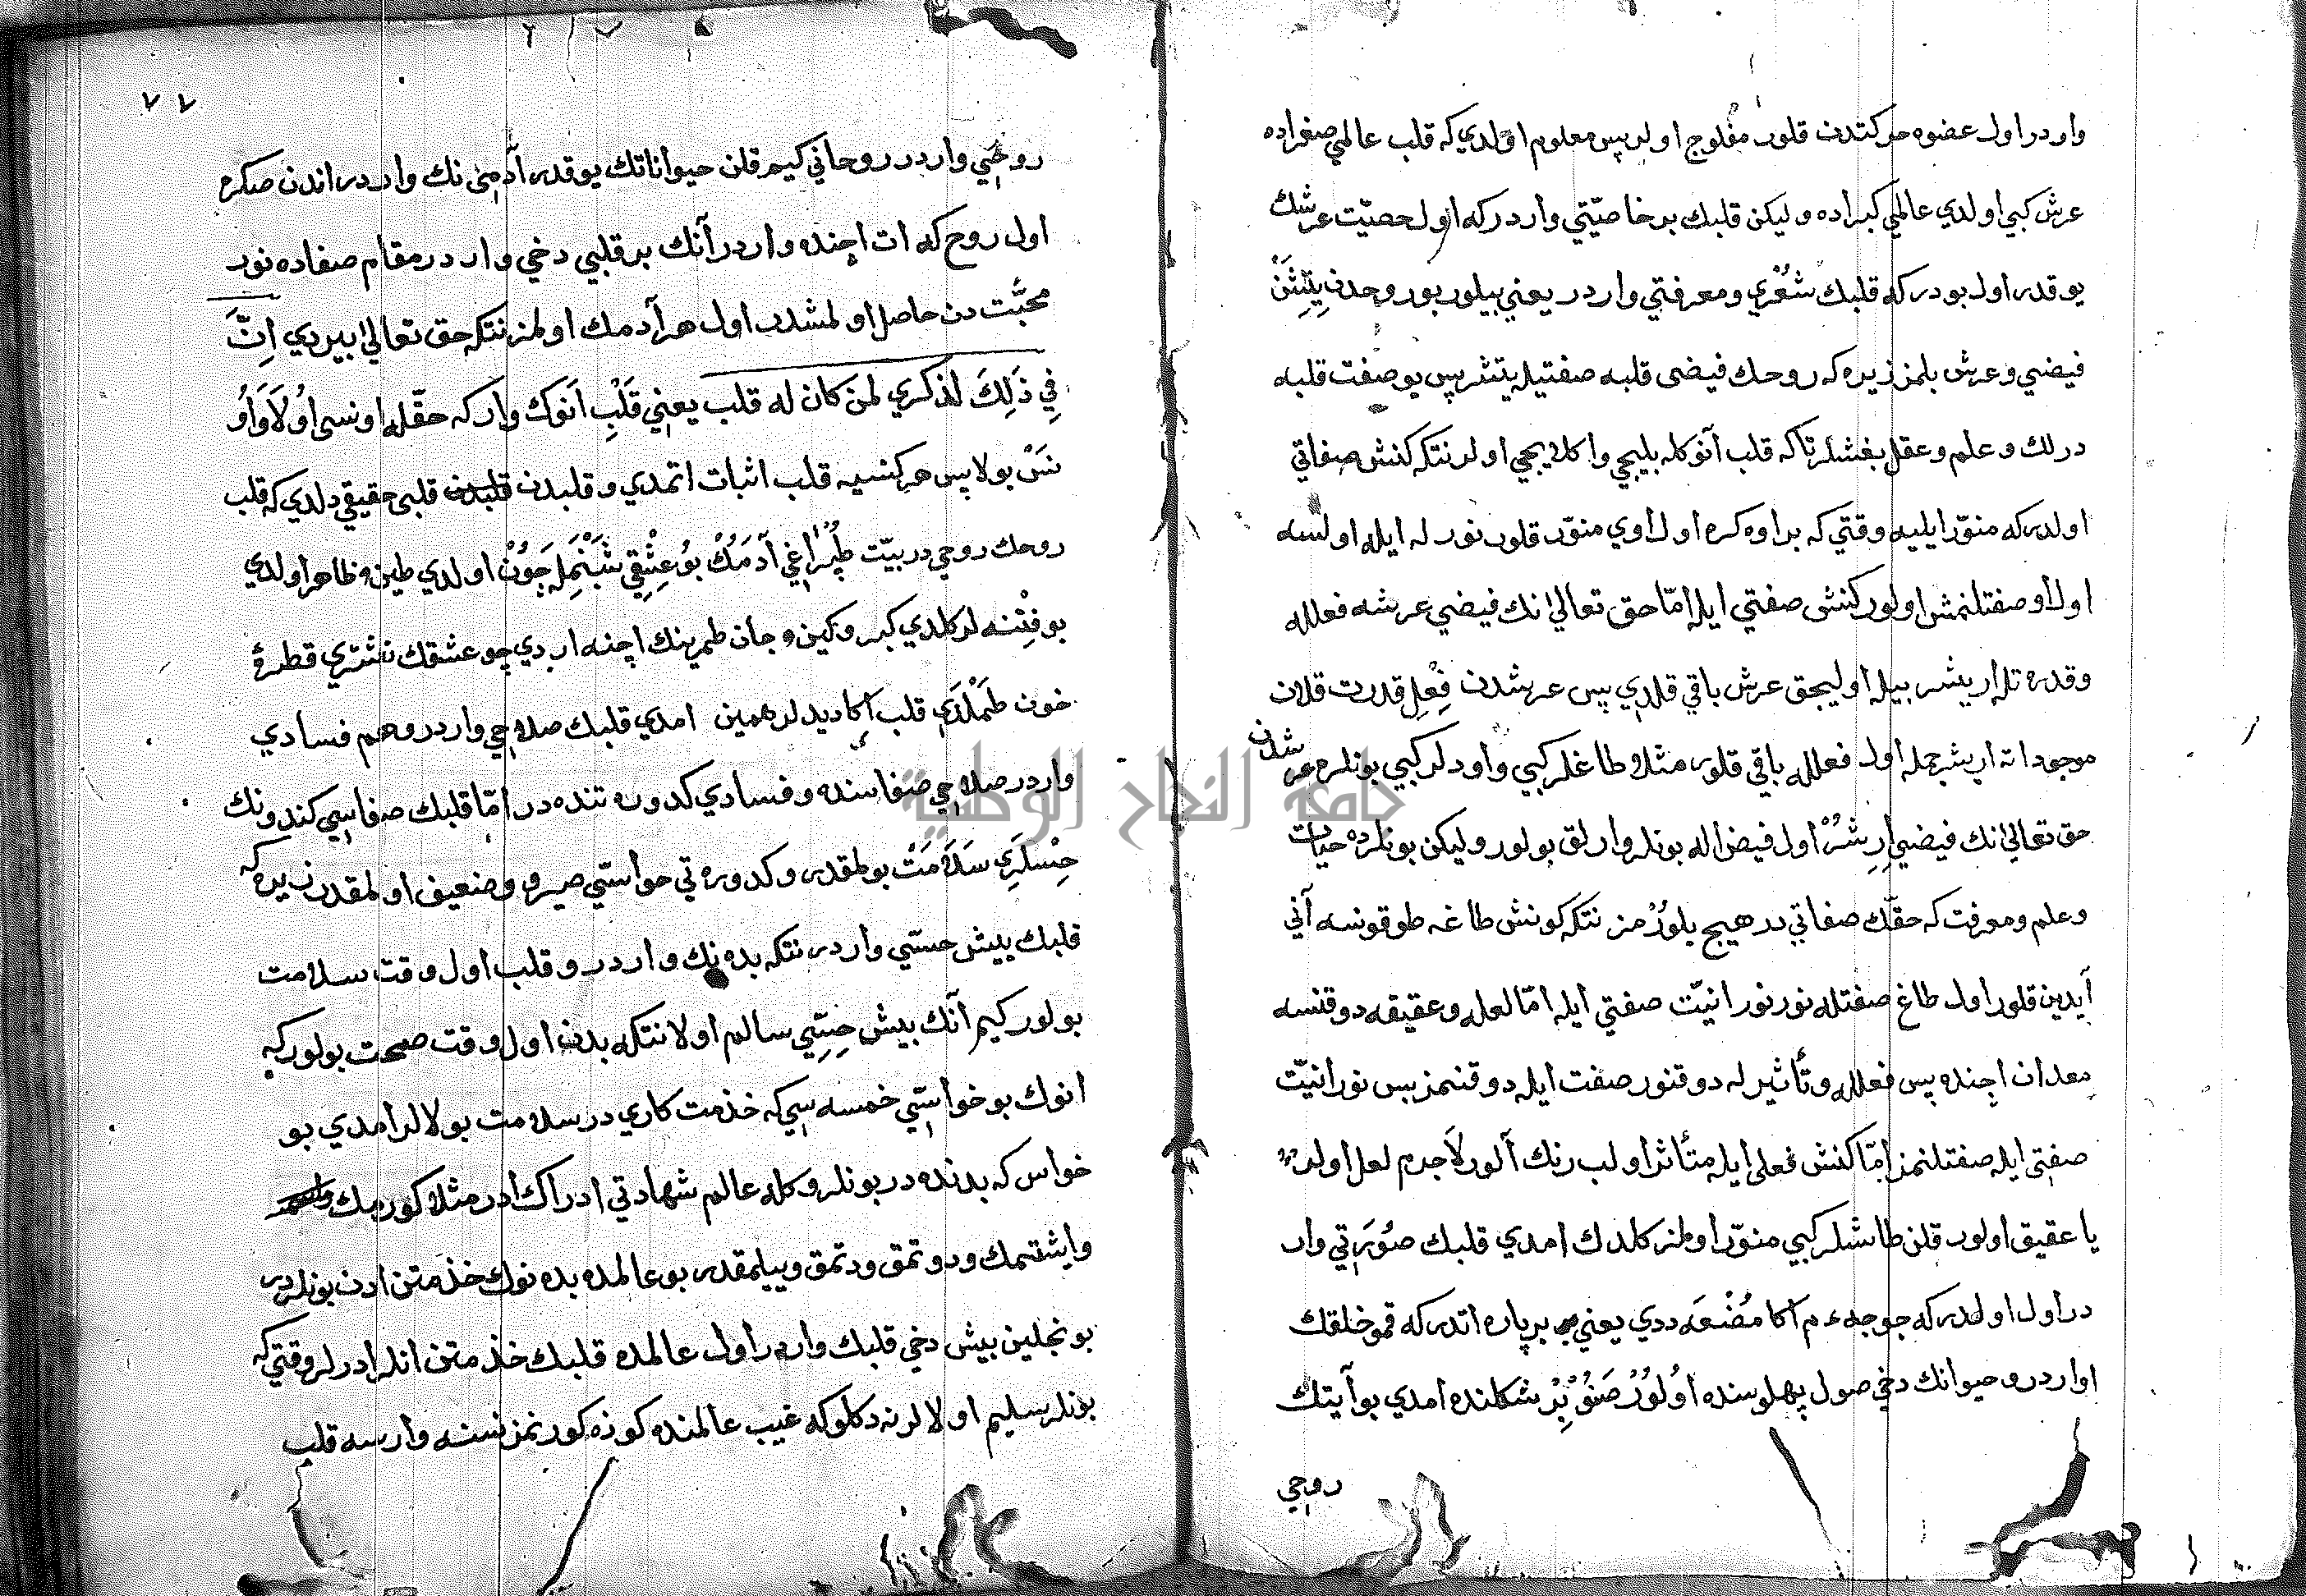 واردر اول عضوه حركتدن قلور مفلوج اولر پس معلوم اولدي كه قلب عالمي صغراده
عرش كبي اولدي عالمي كبراده وليكن قلبك بر خاصيّتي واردر كه اول خصيّت عرشك
يوقدر اول بودر كه قلبك شُعُرْي ومعرفتي واردر يعني بيلور بو روحدن يِتِشَنْ
فيضي وعرش بلمز زيره كه روحك فيضى قلبه صفتيله يتشر پس بو صفت قلبه
درلك وعلم وعقل بغشلر تا كه قلب آنوكله بليجي واكلايجي اولر نتكه كنش صفاتي
اولدر كه منوّر ايليه وقتي كه بر اوه كره اول اوي منوّر قلور نورله ايله اولسه
اول او صفتلنمش اولور كنش صفتي ايله امّا حق تعالىٰ نك فيضي عرشه فعلله
وقدرتله اريشر بيله اوليجق عرش باقي قلدي پس عرشدن فِعْلِ قدرت قلان
موجوداته اريشر جمله اول فعلله باقي قلور مثلا طاغلر كبي واودلر كبي بونلره عرشدن
حق تعالىٰ نك فيضي اِرِشُرْ اول فيض اله بونلر وارلق بولور وليكن بونلرده حيات
وعلم ومعرفت كه حقّك صفاتي در هيچ بلوُرْمز نتكه كونش طاغه طوقونسه آني
آيدين قلور اول طاغ صفتله نور نورانيّت صفتي ايله امّا لعله وعقيقه دوقنسه
معدان اچنده پس فعلله وتأثيرله دوقنور صفت ايله دوقنمز پس نورانيّت
صفتى ايله صفتلنمز امّا كنش فعلى ايله متأثر اولب رنك آلور لاَجرم لعل اولر
يا عقيق اولور قلن طاشلر كبي منوّر اولمز كلدك امدي قلبك صوُرَتي وار
در اول اولدر كه خوجهء م اكا مُضْغَه ددي يعني بر پاره اتدر كه قمو خلقك
اواردر وحيوانك دخي صول پهلوسنده اوُلوُرْ صَنوُبِرْ شكلنده امدي بو آيتك
روحي
٧٧
روحي واردر روحاني كيم قلن حيواناتك يوقدر آدمى نك واردر اندن صكره
اول روح كه ات اچنده واردر آنك بر قلبي دخي واردر مقام صفاده نور
محبّت دن حاصل اولمشدر اول هر آدمك اولمز نتكه حق تعالىٰ بيردي اِنَّ
فِي ذَلِكَ لذكري لمن كان له قلب يعني قَلْبِ اَنوك وار كه حقّله اونسى اوُلاَ وَاوُ
نسَْ بولا پس هر كسيه قلب اثبات اتمدي وقلبدن قلبدن قلبى حقيقي دلدي كه قلب
روحك روحي در بيّت طُپْرَاغِي آدَمُكْ بوُ عِشْقِي شَبْنَمِلَه جَوُنْ اولدي طين وظاهر اولدي
بو فِتْنه لر كلدي كبر وكين وجان طمرينك اچنه اردي چو عشقك نشترى قطرۀ
خون طَمْلَدَي قلب اكا ديدلر همين امدي قلبك صلاحي واردر وهم فسادي
واردر صلاحي صفاسنده وفسادي كدورتنده در امّا قلبك صفاسي كندونك
حِسْلَرِي سَلاَمَتْ بولمقدر وكدورتي حواسّي صيرو وضعيف اولمقدر زيره كه
قلبك بيش حسّي واردر نتكه بدنك واردر وقلب اول وقت سلامت
بولور كيم آنّك بيش حِسِّي سالم اولا نتكه بدن اول وقت صحت بولور كه
انوك بو خواسّي خمسه سي كه خذمت كاري در سلامت بولالر امدي بو
خواس كه بدنده در بونلروكله عالم شهادتي ادراك ادر مثلا كورمك
وايشتمك ودوتمق ودتمق وبيلمقدر بو عالمده بدنوك خذمتن ادن بونلردر
بونجلين بيش دخي قلبك واردر اول عالمده قلبك خذمتن انلر ادرلر وقتي كه
بونلر سليم اولالر نه دكلو كه غيب عالمنده كوزه كورنمز نسنه وارسه قلب